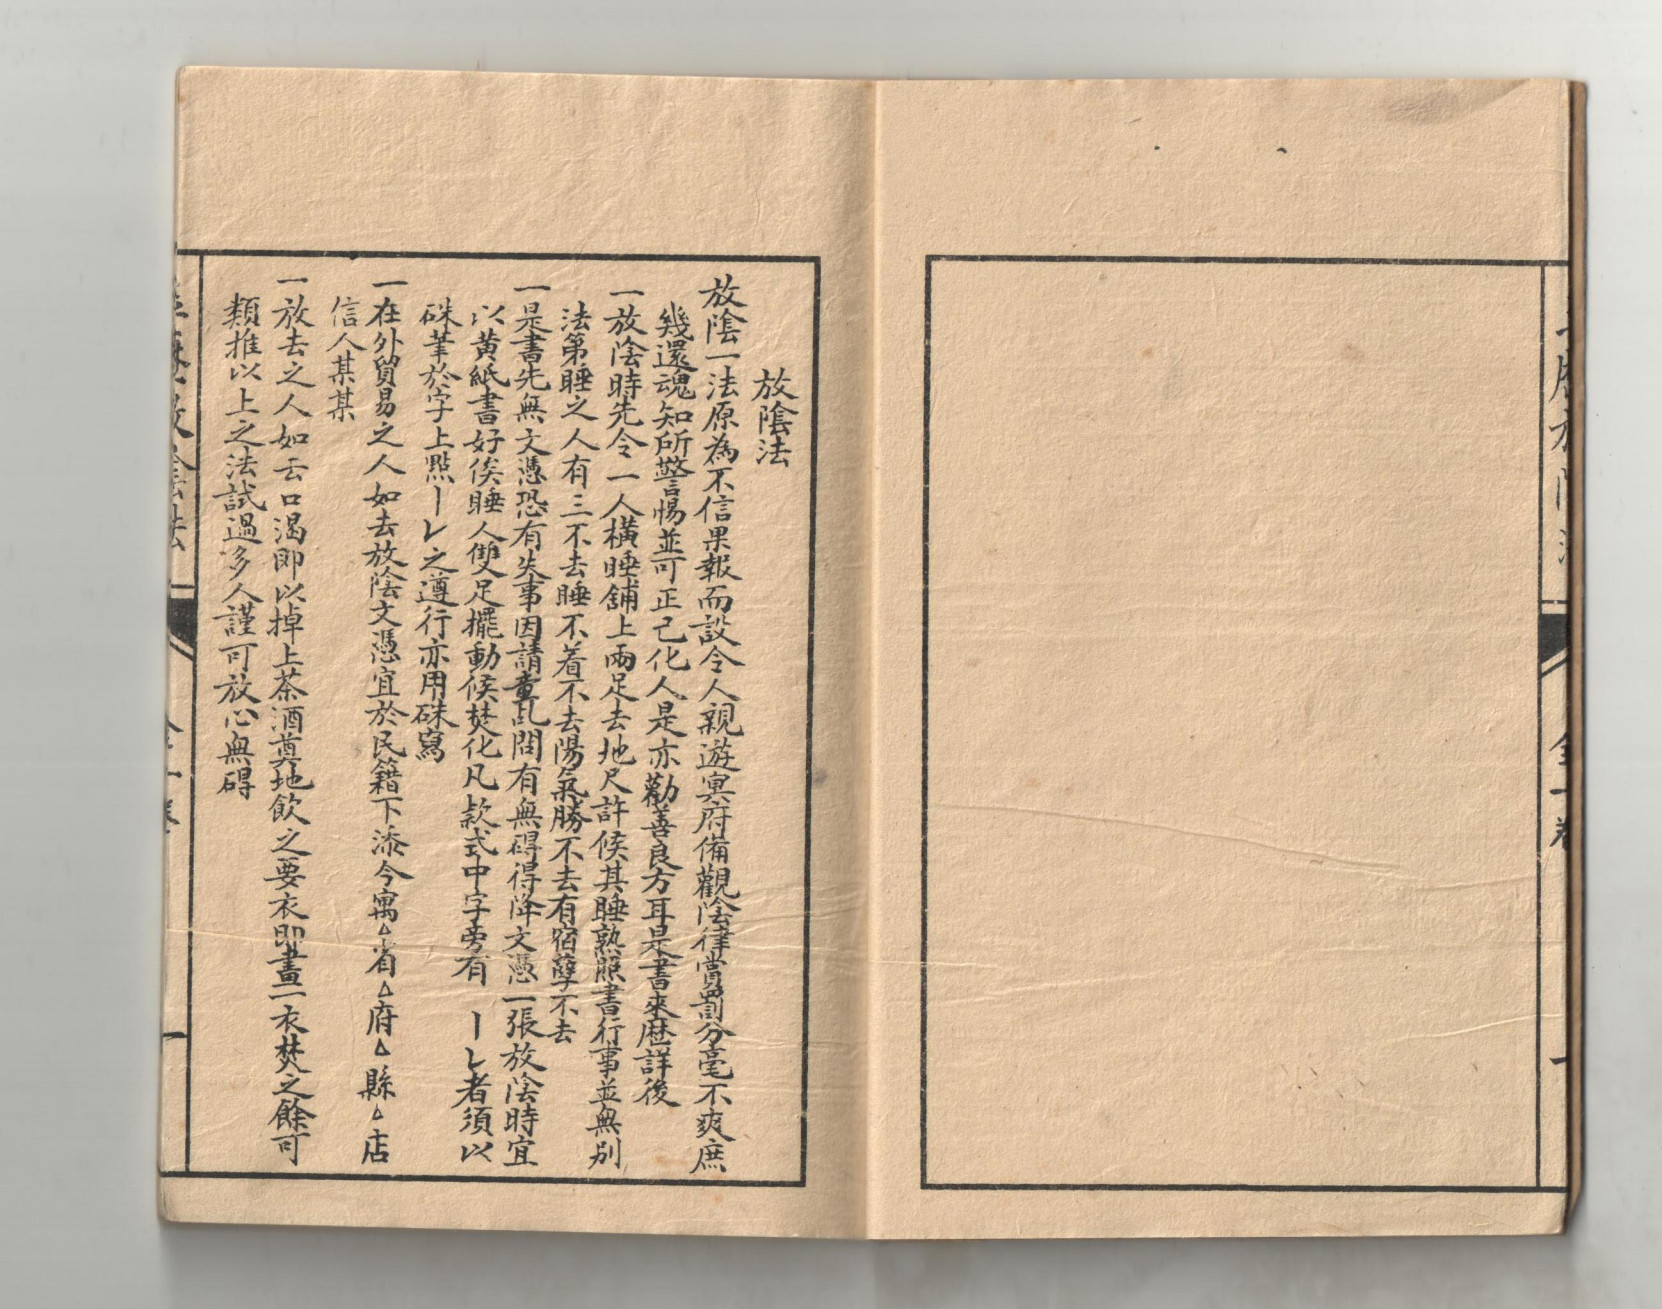 放陰法
放陰一法原為不信果報而設令人親遊冥府俻觀陰律賞罰分毫不爽庶
幾還魂知所警惕並可正己化人是亦勸善良方耳是書來歷詳後
一放陰時先令一人橫睡舖上兩足去地尺許候其睡熟照書行事並無別
法第睡之人有三不去睡不着不去陽氣勝不去有宿孽不去
一是書先無文憑恐有失事因請童乩問有無碍得降文憑一張放陰時宜
以黃紙書好俟睡人雙足擺動候焚化凡款式中字旁有 者須以
硃筆於字上點 之遵行亦用硃寫
一在外貿易之人如去放陰文憑宜於民籍下添今寓△省△府△縣△店
信人某某
一放去之人如云口渴即以掉上茶酒奠地飲之要衣即畫一衣焚之餘可
類推以上之法試過多人謹可放心無碍
放陰法
一